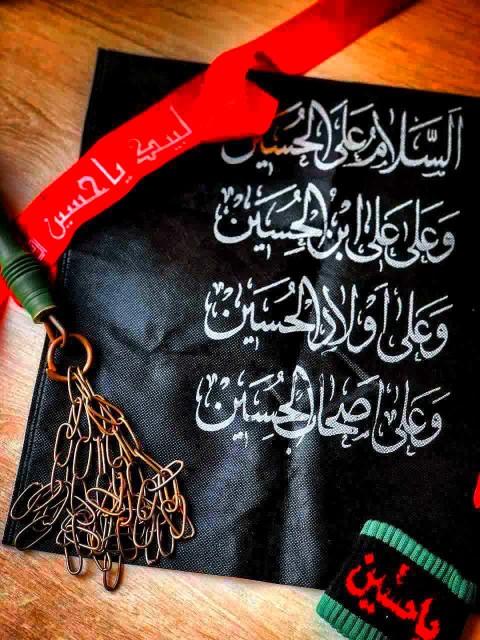 اَلسَّلامُ عَلَى الحُسَين
وَعَلى عَلِى ابْنِ الحُسَيْن
وَعَلى اَوْلادِ الحُسَيْن
وَعَلى اَصحابِ الحُسَيْن
لبیک یا حسین
یا حسین